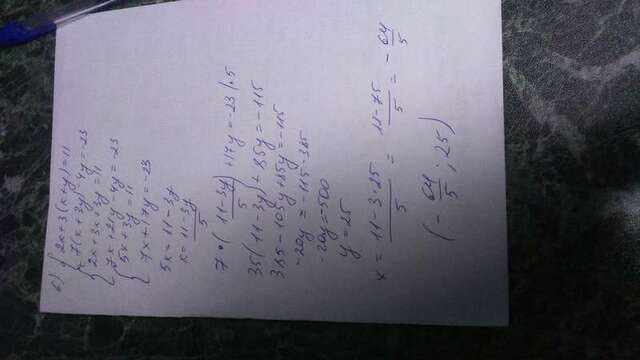 б) { 2x+3(x+y)=11
7(x+3y)-4y=-23
{ 2x+3x+3y=11
7x+21y-4y=-23
{ 5x+3y=11
7x+17y=-23
5x=11-3y
x=11-3y/5
7·(11-3y/5)+17y=-23 |·5
35(11-3y)+85y=-115
385-105y+85y=-115
-20y=-115-385
20y=500
y=25
x=11-3·25/5=11-75/5=-64/5
(-64/5;25)